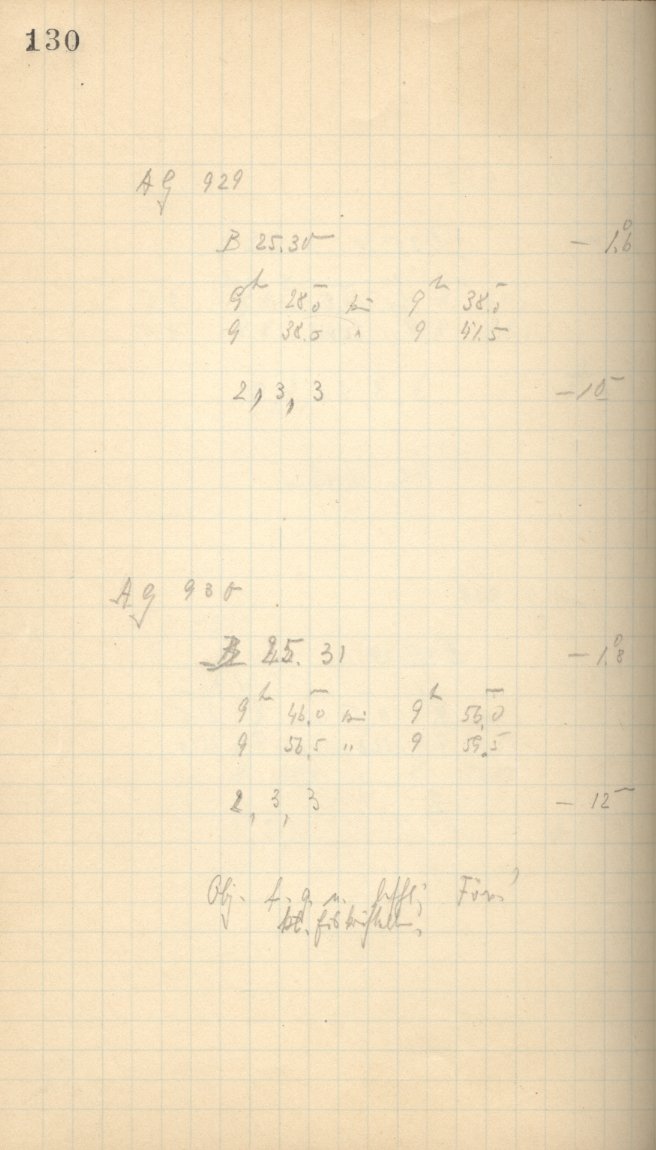 130
AG 929
B 25.30 - 1.°6
9ʰ 28.0 bis 9ʰ 38.5
9 38.5 " 9 41.5
2, 3, 3 - 15
AG 930
B 25.31 - 1.°8
9ʰ 46.0 bis 9ʰ 56.0
9 56.5 " 9 59.5
2, 3, 3 - 12
Obj.